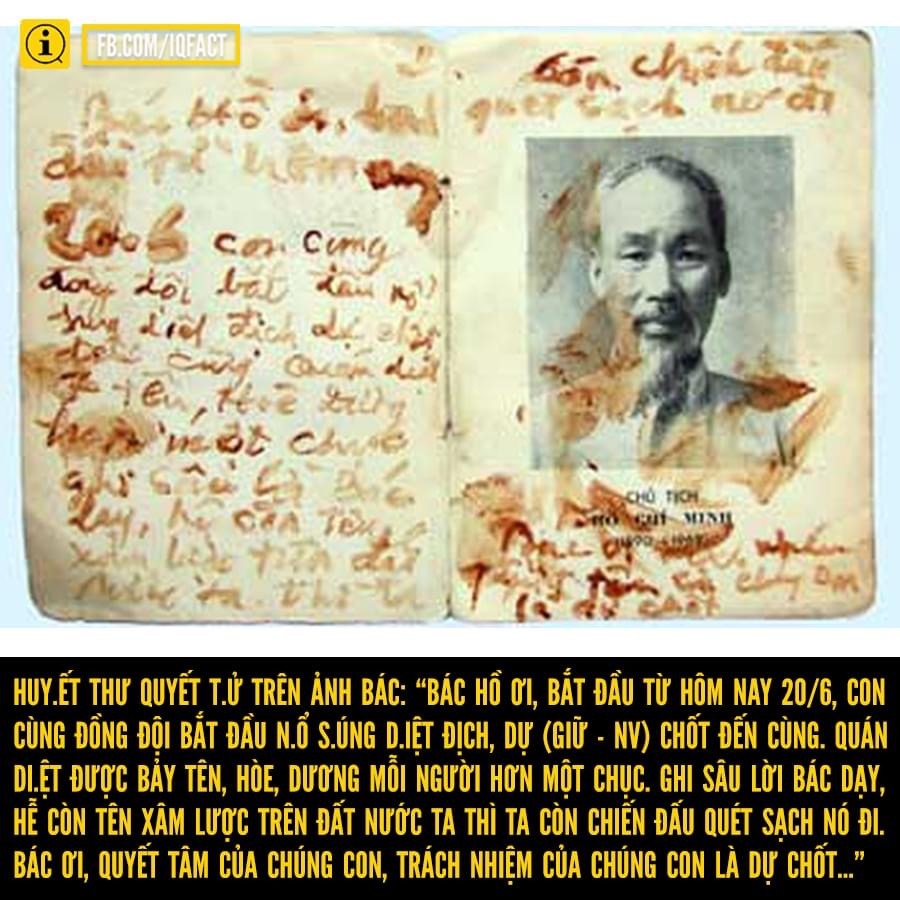 i FB.COM/IQFACT
Bác Hồ ơi, bắt
đầu từ hôm nay
20-6 con cùng
đồng đội bắt đầu nổ
súng diệt địch dự chốt
đến cùng Quán diệt
7 tên, Hoè
hơn một chục
ghi sâu lời Bác
dạy, hễ còn tên
xâm lược trên đất
nước ta thì ta
còn chiến đấu
quét sạch nó đi
CHỦ TỊCH
HỒ CHÍ MINH
Bác ơi
là dự chốt
HUY.ẾT THƯ QUYẾT T.Ử TRÊN ẢNH BÁC: “BÁC HỒ ƠI, BẮT ĐẦU TỪ HÔM NAY 20/6, CON
CÙNG ĐỒNG ĐỘI BẮT ĐẦU N.Ổ S.ÚNG D.IỆT ĐỊCH, DỰ (GIỮ - NV) CHỐT ĐẾN CÙNG. QUÁN
DI.ỆT ĐƯỢC BẢY TÊN, HÒE, DƯƠNG MỖI NGƯỜI HƠN MỘT CHỤC. GHI SÂU LỜI BÁC DẠY,
HỄ CÒN TÊN XÂM LƯỢC TRÊN ĐẤT NƯỚC TA THÌ TA CÒN CHIẾN ĐẤU QUÉT SẠCH NÓ ĐI.
BÁC ƠI, QUYẾT TÂM CỦA CHÚNG CON, TRÁCH NHIỆM CỦA CHÚNG CON LÀ DỰ CHỐT...”